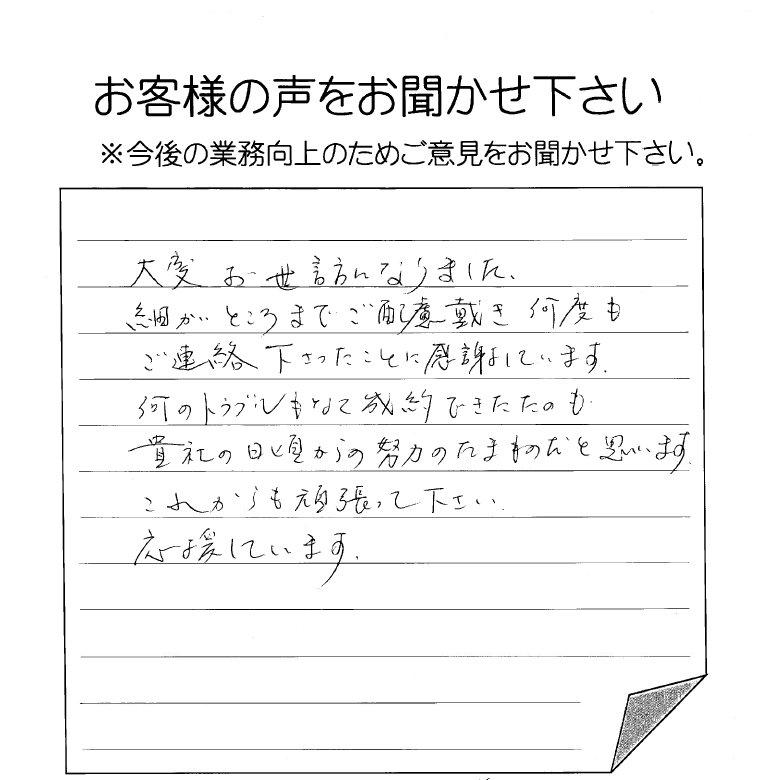 お客様の声をお聞かせ下さい
※今後の業務向上のためご意見をお聞かせ下さい。
大変お世話になりました、
細かいところまでご配慮戴き 何度も
ご連絡下さったことに感謝しています.
何のトラブルもなく成約できたのも
貴社の日頃からの努力のたまものだと思います.
これからも頑張って下さい.
応援しています.